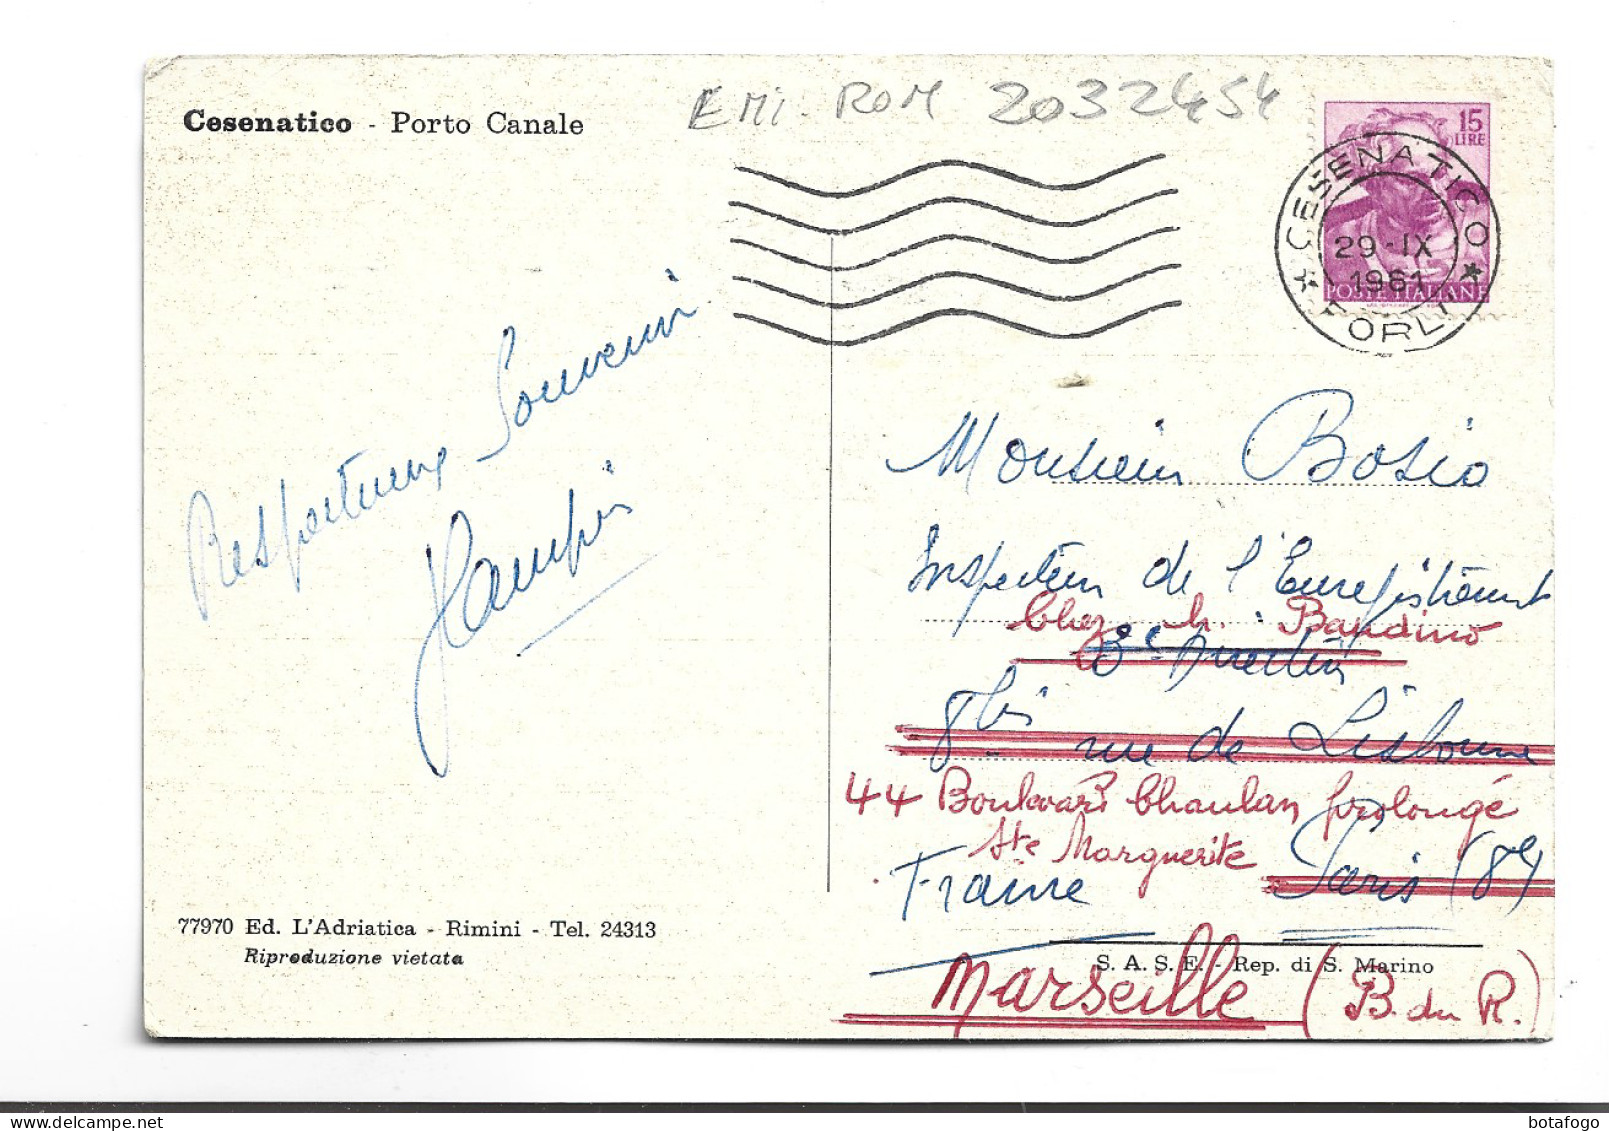 Cesenatico - Porto Canale
EMI. ROM 2032454
15
LIRE
CESENATICO
29-IX
1961
POSTE ITALIANE
FORLI
Respectueux Souvenir
Monsieur Bosio
Inspecteur de l'Enregistrement
Chez M. Bandino
8bis rue de Lisbonne
44 Boulevard Chaulan prolongé
Ste Marguerite
France Paris (8e)
77970 Ed. L'Adriatica - Rimini - Tel. 24313
Riproduzione vietata
S. A. S. E. - Rep. di S. Marino
Marseille (B. du R.)
botafogo